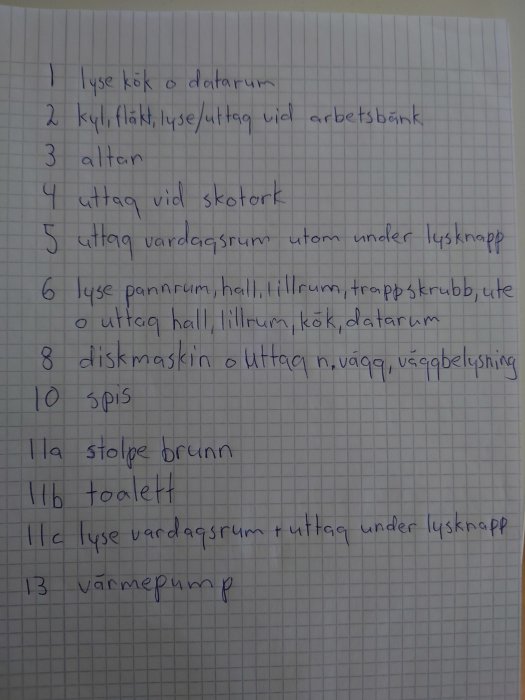 1 lyse kök o datarum
2 kyl, fläkt, lyse/uttag vid arbetsbänk
3 altan
4 uttag vid skotork
5 uttag vardagsrum utom under lysknapp
6 lyse pannrum, hall, lillrum, trappskrubb, ute
o uttag hall, lillrum, kök, datarum
8 diskmaskin o uttag n. vägg, väggbelysning
10 spis
11a stolpe brunn
11b toalett
11c lyse vardagsrum + uttag under lysknapp
13 värmepump